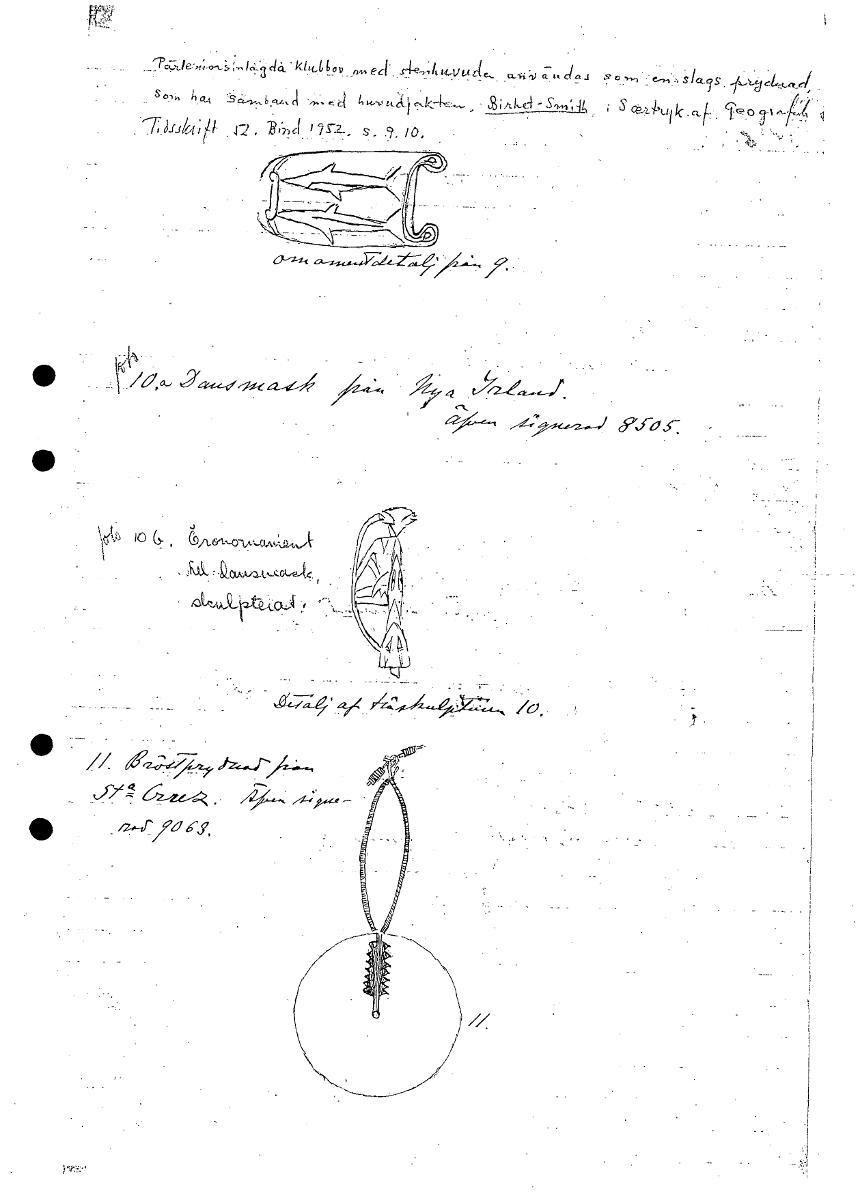 Pärlemorsinlagda klubbor med stenhuvuda användas som en slags prydnad,
som har samband med huvudjakten. Birket-Smith i Særtryk af Geografisk
Tidsskrift 52. Bind 1952. s. 9.10.
Ornamentdetalj från 9.
foto
10.a Dansmask från Nya Irland.
Äfven signerad 8505.
foto 10 b. Öronornament
till dansmask,
skulpterat.
Detalj af träskulpturen 10.
11. Bröstprydnad från
Sta Cruz. Äfven signe-
rad 9063.
11.